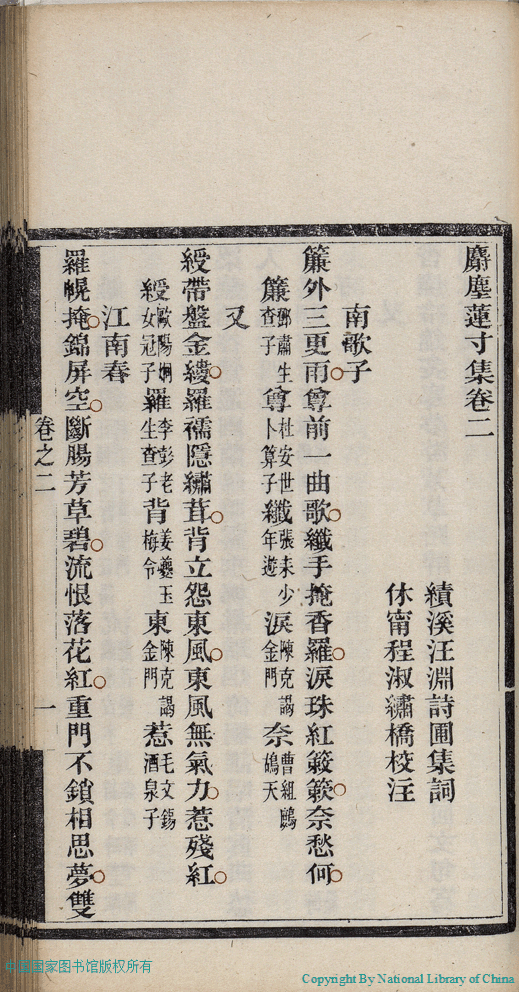 麝塵蓮寸集卷二
績溪汪淵詩圃集詞
休甯程淑繡橋校注
南歌子
簾外三更雨尊前一曲歌纖手掩香羅淚珠紅簌簌奈愁何
簾鄧肅生查子尊杜安世卜算子纖張耒少年遊淚陳克謁金門奈曹組鷓鴣天
又
綬帶盤金縷羅襦隱繡茸背立怨東風東風無氣力惹殘紅
綬歐陽炯女冠子羅李彭老生查子背姜夔玉梅令東陳克謁金門惹毛文錫酒泉子
江南春
羅幌掩錦屏空斷腸芳草碧流恨落花紅重門不鎖相思夢雙
卷之二
一
中国国家图书馆版权所有
Copyright By National Library of China